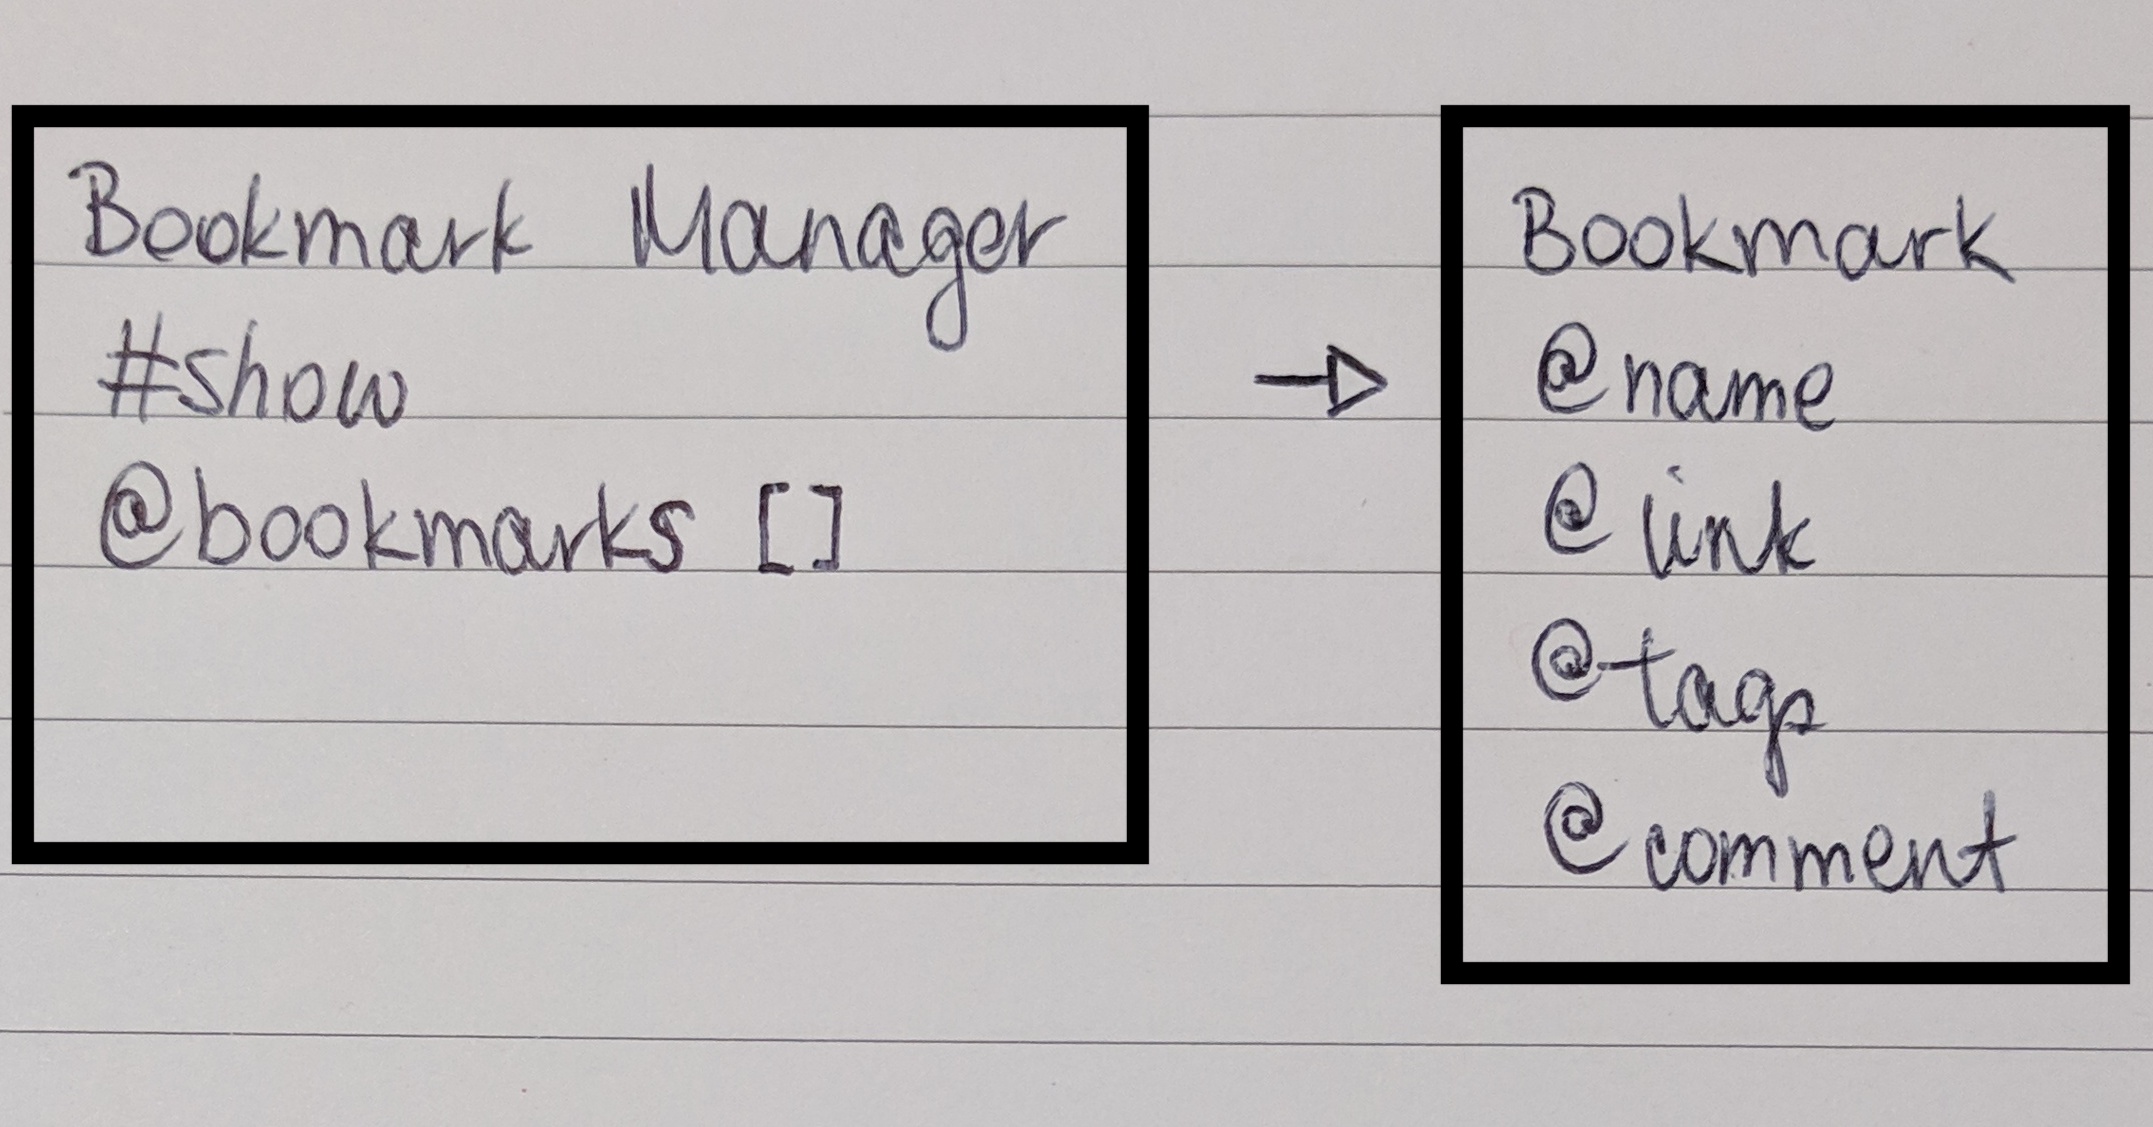 Bookmark Manager
#show
@bookmarks []
Bookmark
@name
@link
@tags
@comment